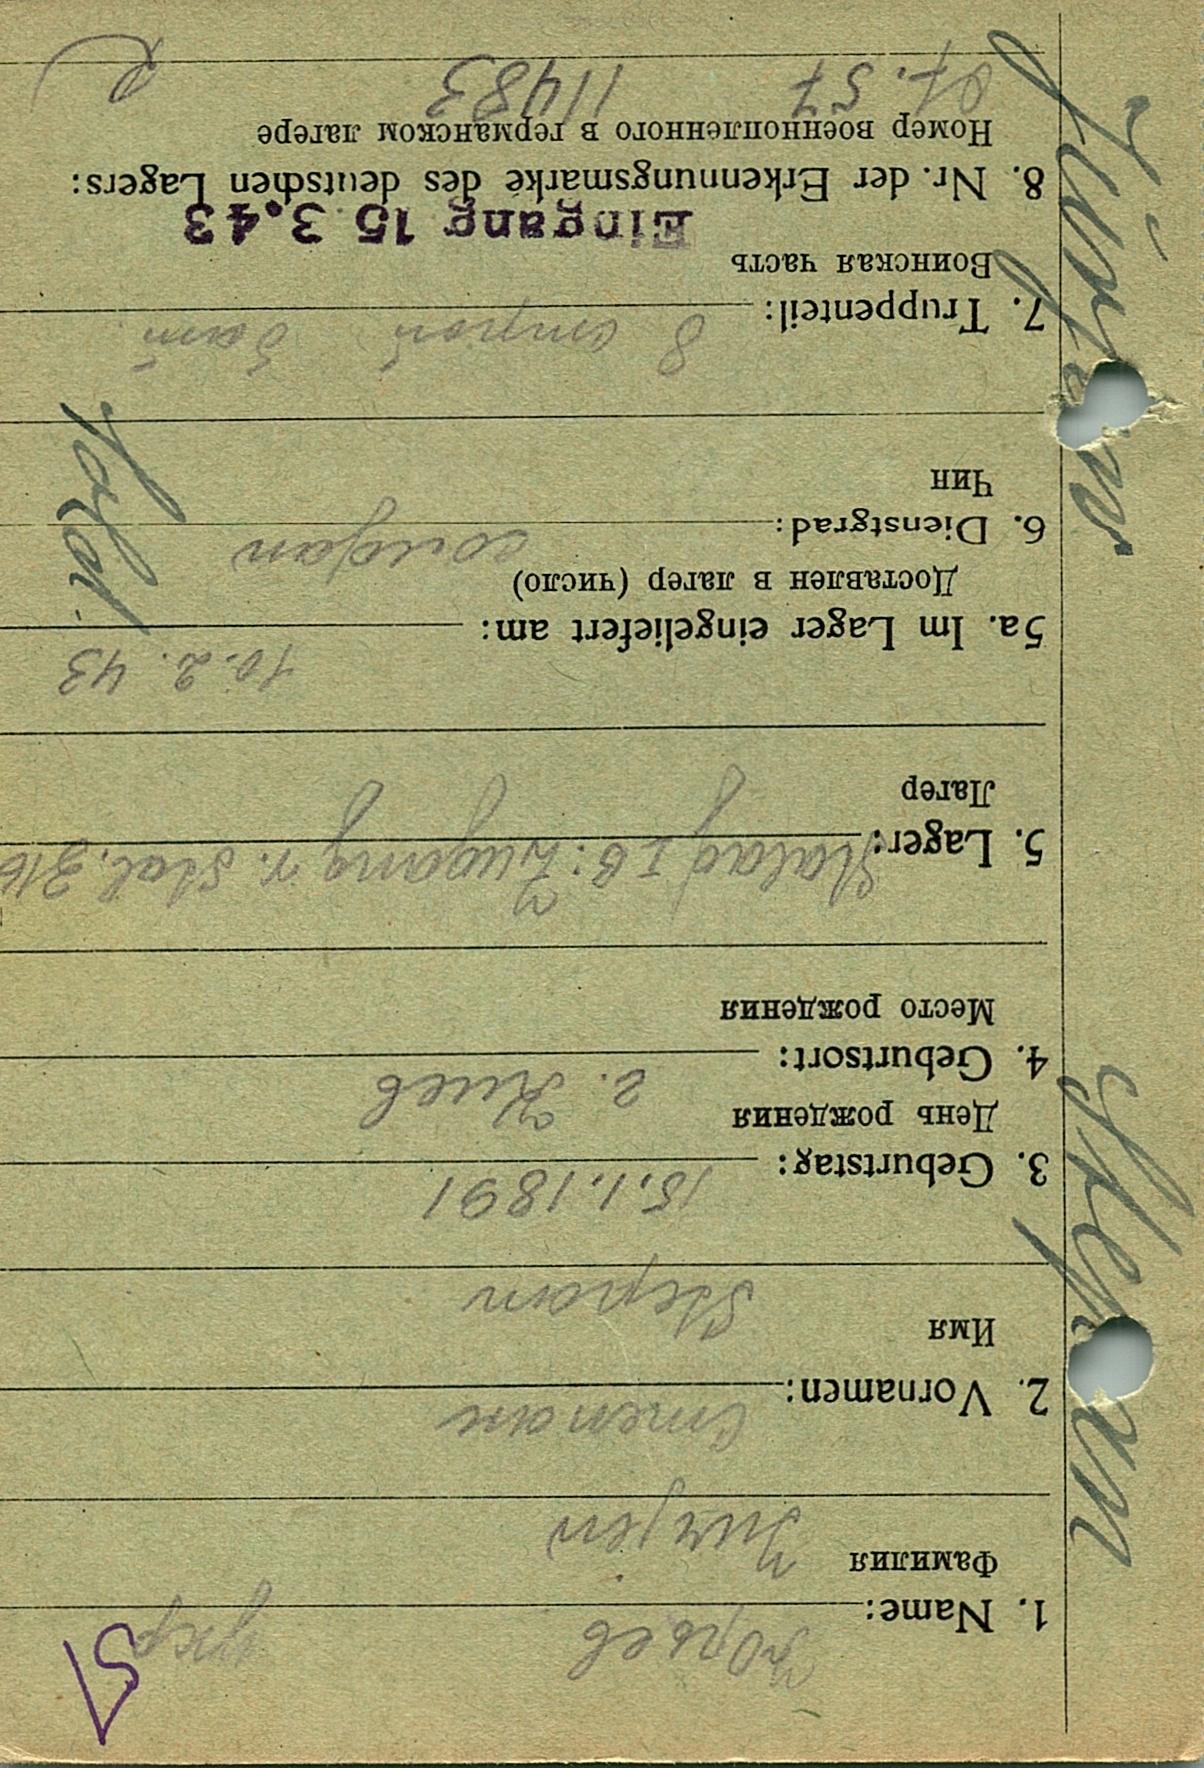 Юрьев укр
1. Name:
Фамилия
Jurjew
Степан
2. Vornamen:
Имя
Stepan
15.1.1891
3. Geburtstag:
День рождения
г. Киев
4. Geburtsort:
Место рождения
Stalag I B: Zugang v. Stal. 316
5. Lager:
Лагер
10.2.43
5a. Im Lager eingeliefert am:
Доставлен в лагер (число)
солдат
6. Dienstgrad:
Чин
Sold.
8
7. Truppenteil:
Воинская часть
Eingang 15 3.43
8. Nr. der Erkennungsmarke des deutschen Lagers:
Номер военнопленного в германском лагере
57 11483
Stepan